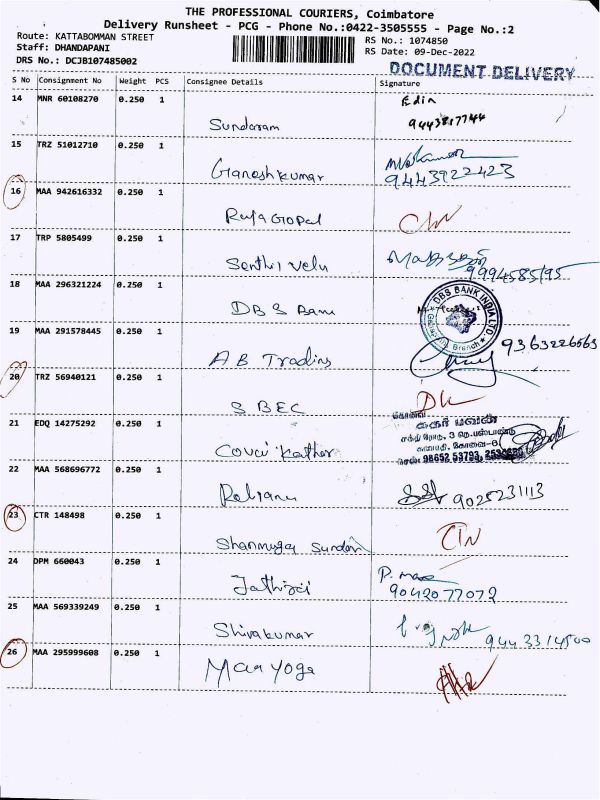 THE PROFESSIONAL COURIERS, Coimbatore
Delivery Runsheet - PCG - Phone No.:0422-3505555 - Page No.:2
Route: KATTABOMMAN STREET RS No.: 1074850
Staff: DHANDAPANI RS Date: 09-Dec-2022
DRS No.: DCJB107485002
DOCUMENT DELIVERY
S No Consignment No Weight PCS Consignee Details Signature
14 MNR 60108270 0.250 1 Edin
Sundaram 9443817744
15 TRZ 51012710 0.250 1
Ganesh kumar 9443922423
16 MAA 942616332 0.250 1
Raja Gopal
17 TRP 5805499 0.250 1
Senthil velu 9994585195
18 MAA 296321224 0.250 1 DBS BANK INDIA LTD.
DBS Bank Branch
19 MAA 291578445 0.250 1 9363226563
AB Trading
20 TRZ 56940121 0.250 1
SBEC
21 EDQ 14275292 0.250 1 கோவை
கதர் பவன்
Covai Kathar கோவை-6
98652 53793
22 MAA 568696772 0.250 1
9025231113
23 CTR 148498 0.250 1
Shanmuga Sundari
24 DPM 660043 0.250 1
9042077072
25 MAA 569339249 0.250 1
Shivakumar 9443314500
26 MAA 295999608 0.250 1
Maa yoga